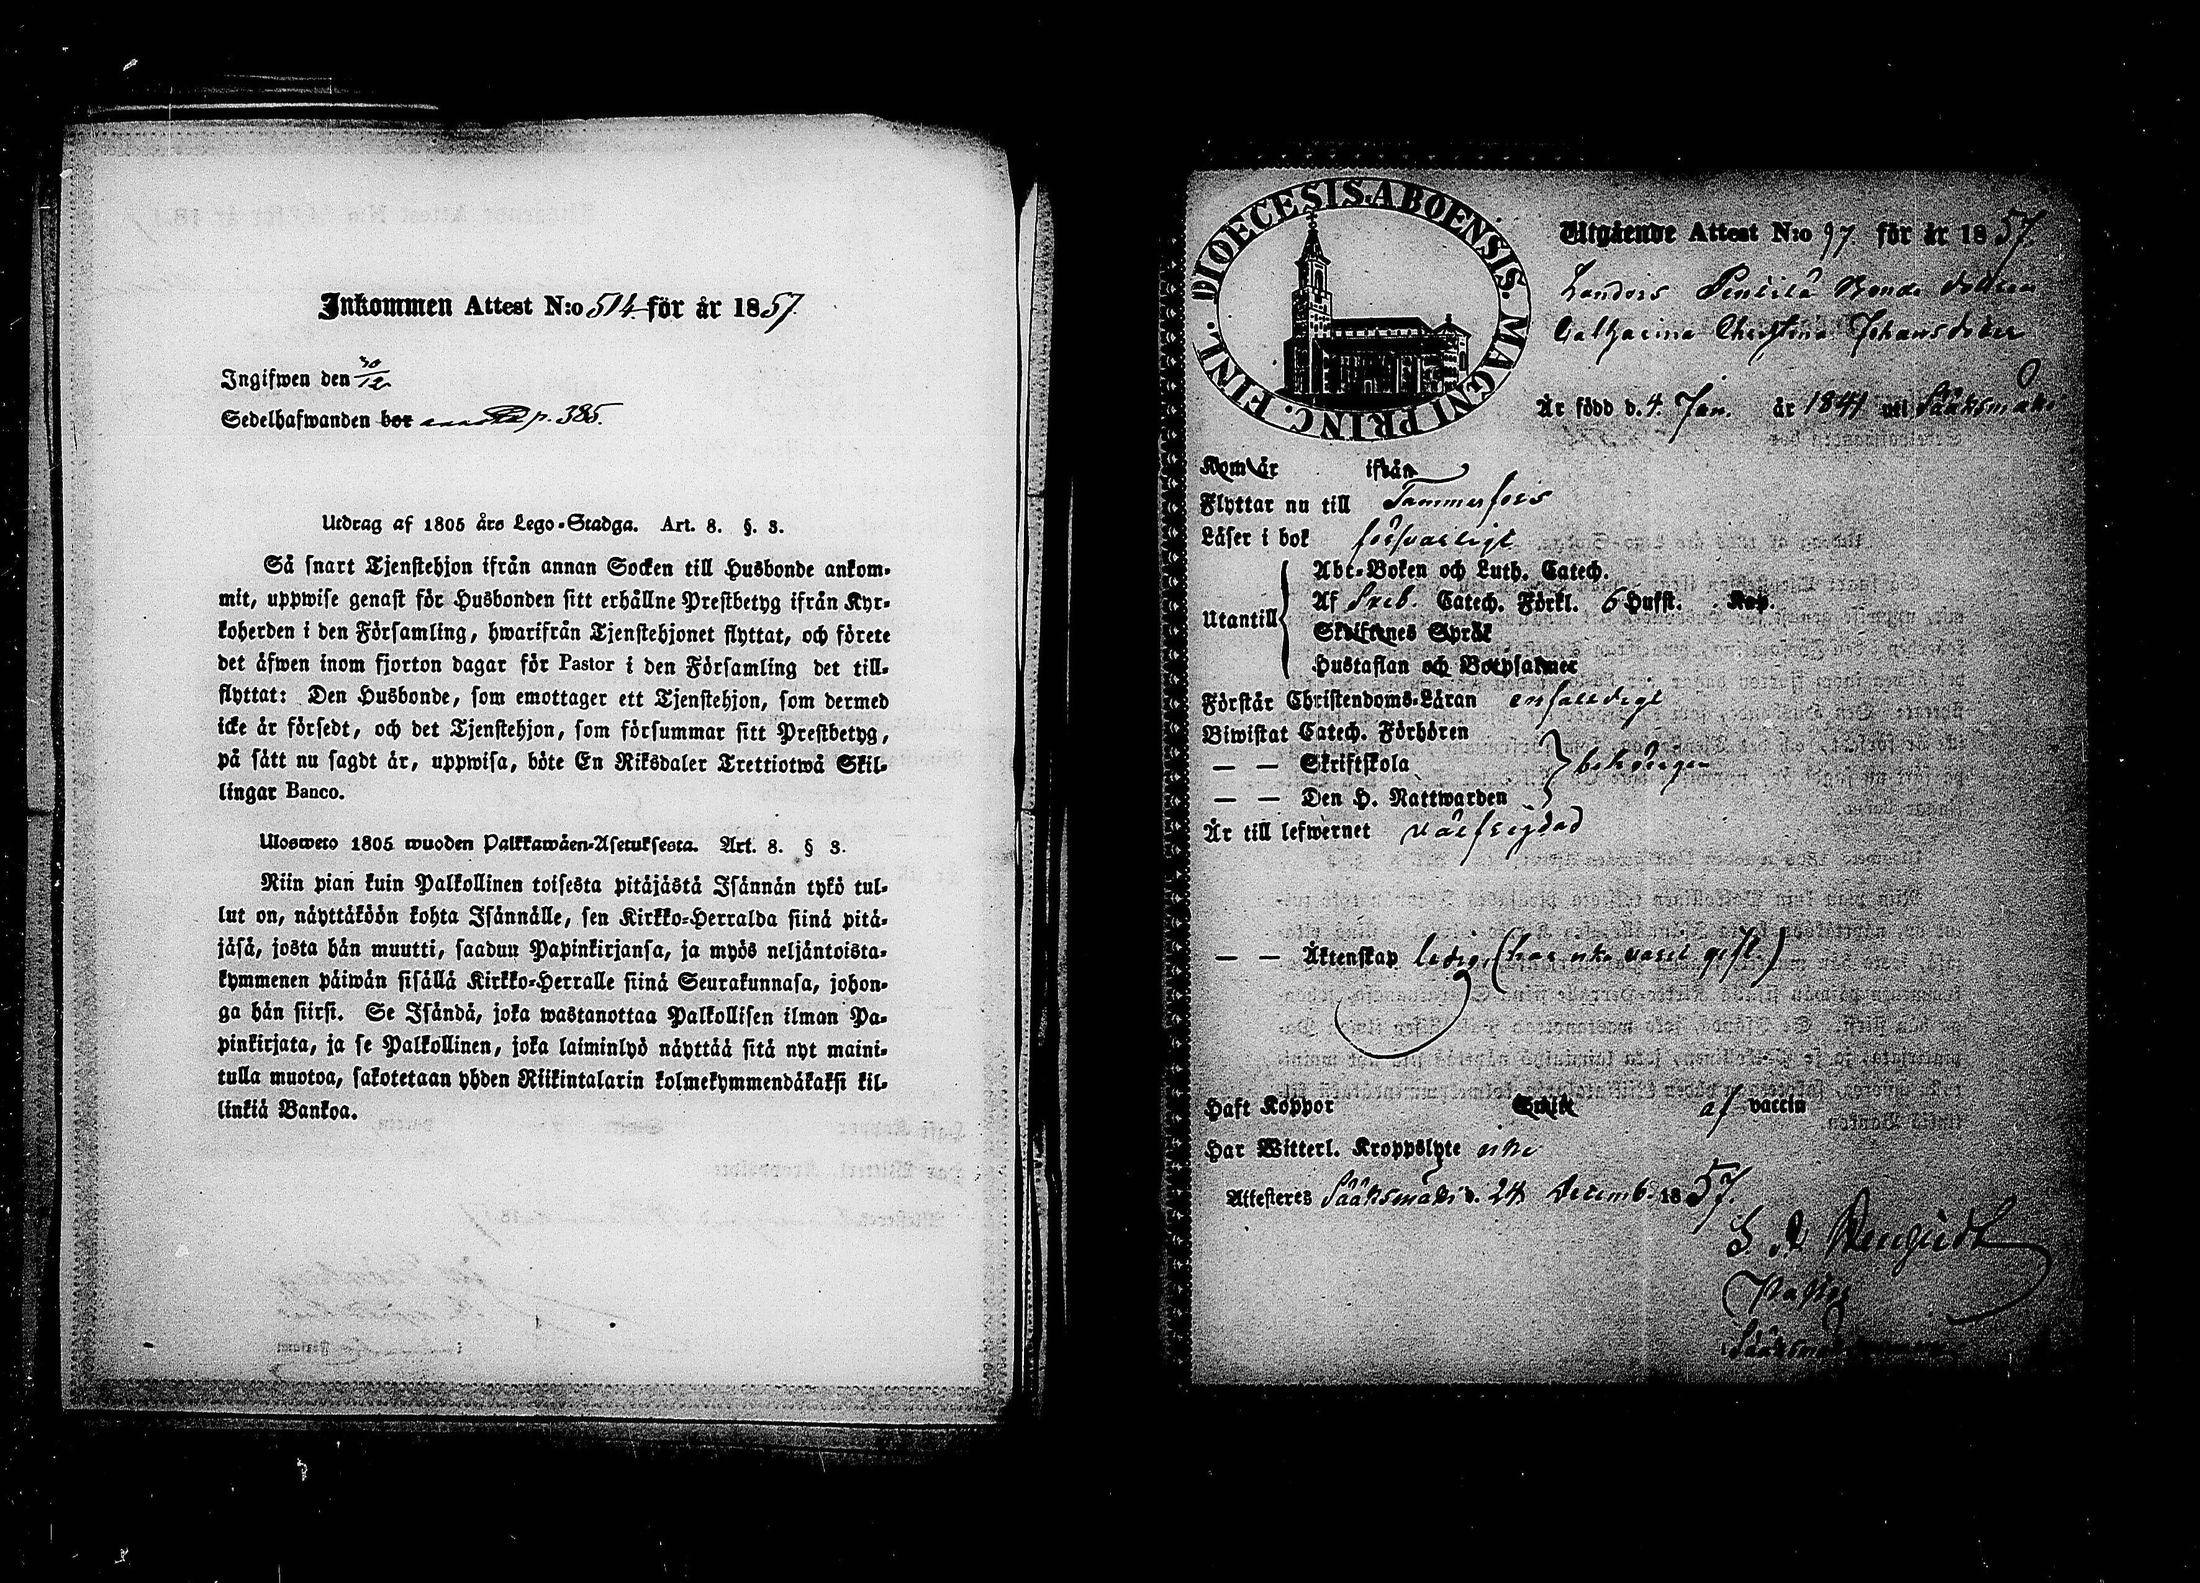 Inkommen Attest N:o 514 för år 1857.
Ingifwen den 30/12
Sedelhafwanden bor p. 385.
Utdrag af 1805 års Lego-Stadga. Art. 8. §. 3.
Så snart Tjenstehjon ifrån annan Socken till Husbonde ankom-
mit, uppwise genast för Husbonden sitt erhållne Prestbetyg ifrån Kyr-
koherden i den Församling, hwarifrån Tjenstehjonet flyttat, och förete
det äfwen inom fjorton dagar för Pastor i den Församling det till-
flyttat: Den Husbonde, som emottager ett Tjenstehjon, som dermed
icke är försedt, och det Tjenstehjon, som försummar sitt Prestbetyg,
på sätt nu sagdt är, uppwisa, böte En Riksdaler Trettiotwå Skil-
lingar Banco.
Uloswето 1805 wuoden Palkkawäen-Asetuksesta. Art. 8. § 3.
Niin pian kuin Palkollinen toisesta pitäjästä Isännän tykö tul-
lut on, näyttäköön kohta Isännälle, sen Kirkko-Herralda siinä pitä-
jäsä, josta hän muutti, saadun Papinkirjansa, ja myös neljäntoista-
kymmenen päiwän sisällä Kirkko-Herralle siinä Seurakunnasa, johon-
ga hän siirsi. Se Isändä, joka wastanottaa Palkollisen ilman Pa-
pinkirjata, ja se Palkollinen, joka laiminlyö näyttää sitä nyt maini-
tulla muotoa, sakotetaan yhden Riikintalarin kolmekymmendäkaksi kil-
linkiä Bankoa.
DIOECESIS. ABOENSIS. MAGNI PRINC. FINL.
Utgående Attest N:o 97 för år 1857.
Pentilä Bonde dottren
Catharina Christina Johansdoter
Är född d. 4. Jan. år 1841 uti Sääksmäki
Kom år ifrån
Flyttar nu till Tammerfors
Läser i bok försvarligt
Utantill
Abc-Boken och Luth. Catech.
Af Sveb. Catech. Förkl. 6 Hufst. Kap.
Skriftenes Språk
Hustaflan och Botpsalmer
Förstår Christendoms-Läran enfaldigt
Biwistat Catech. Förhören
— — Skriftskola } behörigen
— — Den H. Nattwarden
Är till lefwernet välfrejdad
— — Äktenskap ledig, (har icke varit gift.)
Haft Koppor Smitt af vaccin
Har Witterl. Kroppslyte icke
Attesteres Sääksmäki d. 24 Decemb. 1857.
Pastor
Sääksmäki